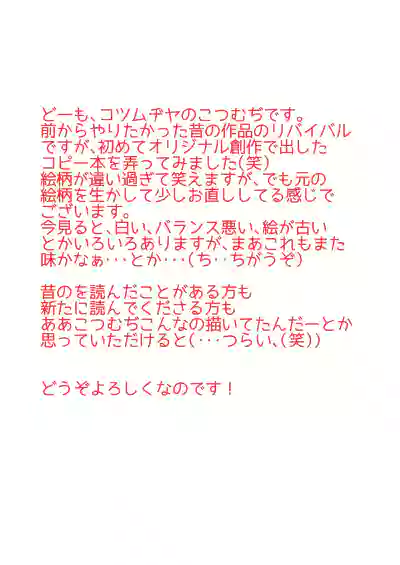 どーも、コツムヂヤのこつむぢです。
前からやりたかった昔の作品のリバイバル
ですが、初めてオリジナル創作で出した
コピー本を弄ってみました(笑)
絵柄が違い過ぎて笑えますが、でも元の
絵柄を生かして少しお直ししてる感じで
ございます。
今見ると、白い、バランス悪い、絵が古い
とかいろいろありますが、まあこれもまた
味かなぁ・・・とか・・・(ち・・ちがうぞ)
昔のを読んだことがある方も
新たに読んでくださる方も
ああこつむぢこんなの描いてたんだーとか
思っていただけると(・・・つらい、(笑))
どうぞよろしくなのです！